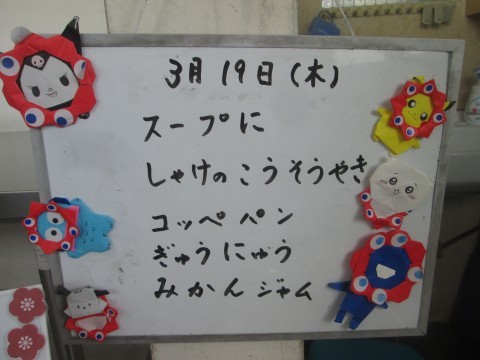 3月19日(木)
スープに
しゃけのこうそうやき
コッペパン
ぎゅうにゅう
みかんジャム